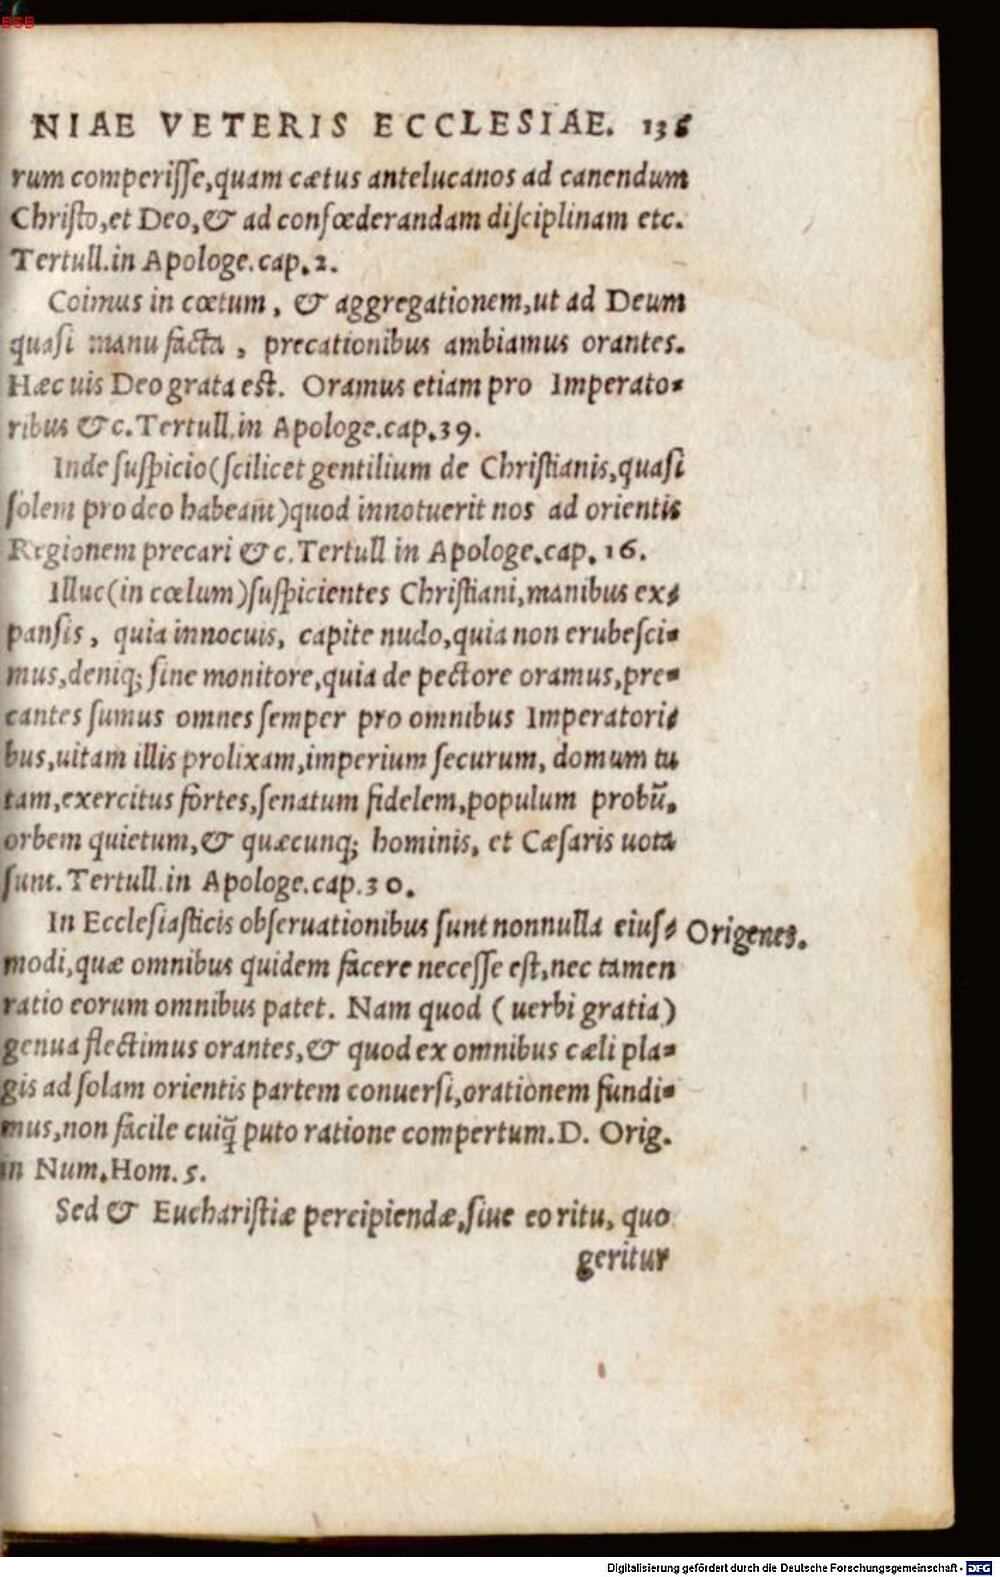 BSB
NIAE VETERIS ECCLESIAE. 136
rum comperisse, quam cætus antelucanos ad canendum
Christo, et Deo, & ad confœderandam disciplinam etc.
Tertull. in Apologe. cap. 2.
Coimus in cœtum, & aggregationem, ut ad Deum
quasi manu facta, precationibus ambiamus orantes.
Hæc uis Deo grata est. Oramus etiam pro Imperato-
ribus &c. Tertull. in Apologe. cap. 39.
Inde suspicio (scilicet gentilium de Christianis, quasi
solem pro deo habeant) quod innotuerit nos ad orientis
Regionem precari &c. Tertull in Apologe. cap. 16.
Illuc (in cœlum) suspicientes Christiani, manibus ex-
pansis, quia innocuis, capite nudo, quia non erubesci-
mus, deniq; sine monitore, quia de pectore oramus, pre-
cantes sumus omnes semper pro omnibus Imperatori-
bus, uitam illis prolixam, imperium securum, domum tu
tam, exercitus fortes, senatum fidelem, populum probũ,
orbem quietum, & quæcunq; hominis, et Cæsaris uota
sunt. Tertull. in Apologe. cap. 30.
In Ecclesiasticis obseruationibus sunt nonnulla eius-
Origenes.
modi, quæ omnibus quidem facere necesse est, nec tamen
ratio eorum omnibus patet. Nam quod (uerbi gratia)
genua flectimus orantes, & quod ex omnibus cæli pla-
gis ad solam orientis partem conuersi, orationem fundi-
mus, non facile cuiq̃ puto ratione compertum. D. Orig.
in Num. Hom. 5.
Sed & Eucharistiæ percipiendæ, siue eo ritu, quo
geritur
Digitalisierung gefördert durch die Deutsche Forschungsgemeinschaft - DFG